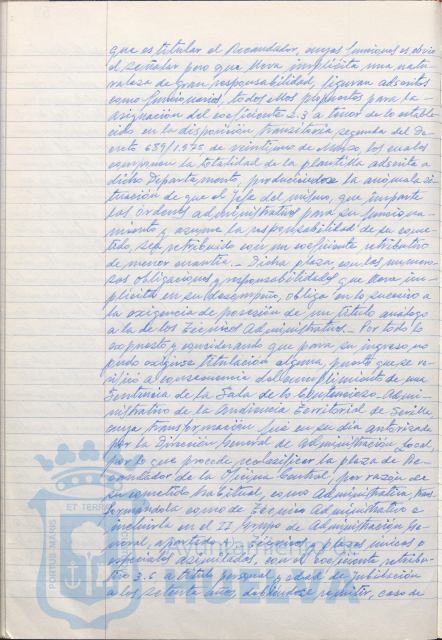 que es titular el Recaudador, cuyas funciones es obvio
el señalar pero que lleva implícita una natu-
raleza de gran responsabilidad, figuran adscritos
como funcionarios, todos ellos propuestos para la
asignación del coeficiente 2.3 a tenor de lo estable-
cido en la disposición transitoria segunda del De-
creto 689/1.975 de veintiuno de Marzo, los cuales
componen la totalidad de la plantilla adscrita a
dicho Departamento, produciéndose la anómala si-
tuación de que el Jefe del mismo, que imparte
las órdenes administrativas para su funciona-
miento y asume la responsabilidad de su come-
tido, sea retribuido con un coeficiente retributivo
de menor cuantía.- Dicha plaza, con las numero-
sas obligaciones y responsabilidades que lleva im-
plícitas en su desempeño, obliga en lo sucesivo a
la exigencia de posesión de un título análogo
a la de los Técnicos Administrativos.- Por todo lo
expuesto y considerando que para su ingreso no
pudo exigirse titulación alguna, puesto que se ve-
rificó a consecuencia del cumplimiento de una
Sentencia de la Sala de lo Contencioso Admi-
nistrativo de la Audiencia Territorial de Sevilla,
cuya transformación fué en su día autorizada
por la Dirección General de Administración Local,
por lo que procede reclasificar la plaza de Re-
caudador de la Oficina Central, por razón de
su cometido habitual, como Administrativa, trans-
formándola como de Técnico Administrativo e
incluirla en el II Grupo de Administración Ge-
neral, apartado a) Técnicos y plazas únicas o
especiales asimiladas, con el coeficiente retribu-
tivo 3.6 a título personal y edad de jubilación
a los setenta años, debiéndose remitir, caso de
PORTUS MARIS
ET TERR
Ayuntamiento de
HUELVA